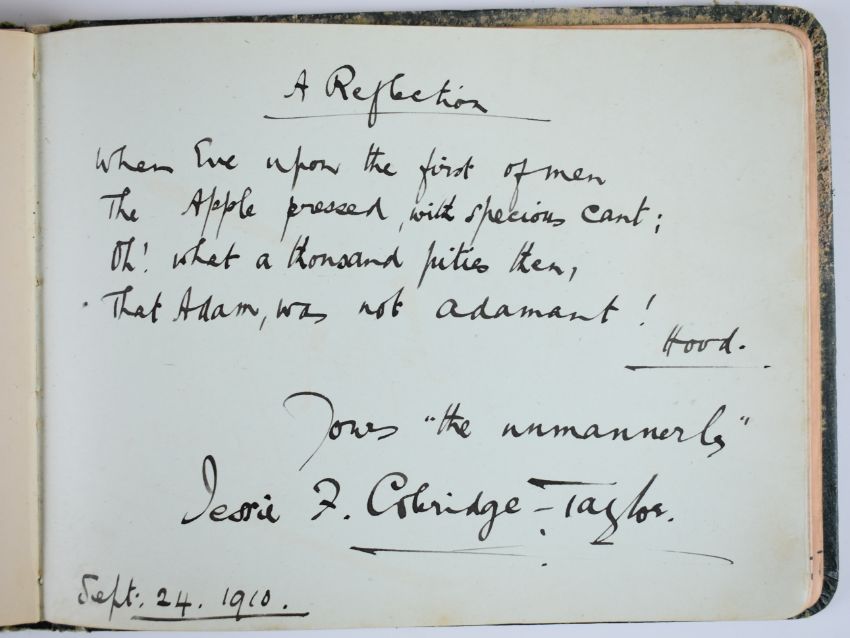 A Reflection
When Eve upon the first of men
The Apple pressed, with specious cant;
Oh! what a thousand pities then,
That Adam, was not adamant!
Hood.
Yours "the unmannerly"
Jessie F. Coleridge-Taylor.
Sept: 24. 1910.